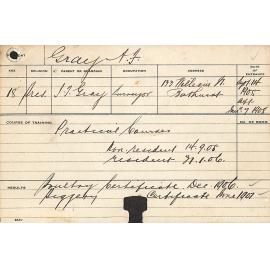 Gray A. J.
AGE
RELIGION
PARENT OR GUARDIAN
OCCUPATION
ADDRESS
DATE OF ENTRANCE
18 Pres. J. T. Gray Surveyor 133 William St. Bathurst
Sept. 14 1905
COURSE OF TRAINING
Practical Courses
Non resident 14.9.05
resident
RESULTS
Poultry Certificate Dec. 1906.
Piggery Certificate June 1907